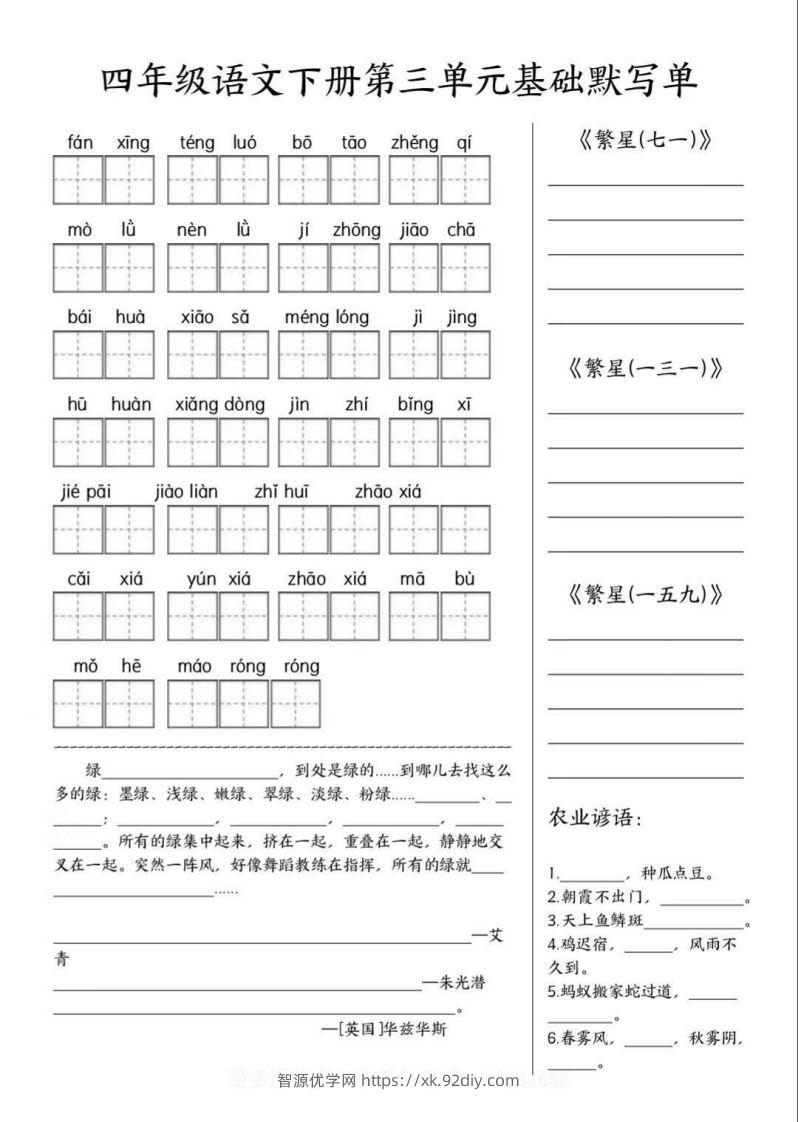 四年级语文下册第三单元基础默写单
fán xīng téng luó bō tāo zhěng qí
mò lǜ nèn lǜ jí zhōng jiāo chā
bái huà xiāo sǎ méng lóng jì jìng
hū huàn xiǎng dòng jìn zhí bǐng xī
jié pāi jiào liàn zhǐ huī zhāo xiá
cǎi xiá yún xiá zhāo xiá mā bù
mǒ hē máo róng róng
绿____________________，到处是绿的……到哪儿去找这么
多的绿：墨绿、浅绿、嫩绿、翠绿、淡绿、粉绿……________、__
______；___________，___________，___________，______
______。所有的绿集中起来，挤在一起，重叠在一起，静静地交
叉在一起。突然一阵风，好像舞蹈教练在指挥，所有的绿就____
____________________……
____________________—艾
青
____________________—朱光潜
____________________。
—[英国]华兹华斯
《繁星(七一)》
《繁星(一三一)》
《繁星(一五九)》
农业谚语：
1.________，种瓜点豆。
2.朝霞不出门，__________。
3.天上鱼鳞斑____________。
4.鸡迟宿，______，风雨不
久到。
5.蚂蚁搬家蛇过道，______
________。
6.春雾风，______，秋雾阴，
______。
智源优学网 https://xk.92diy.com